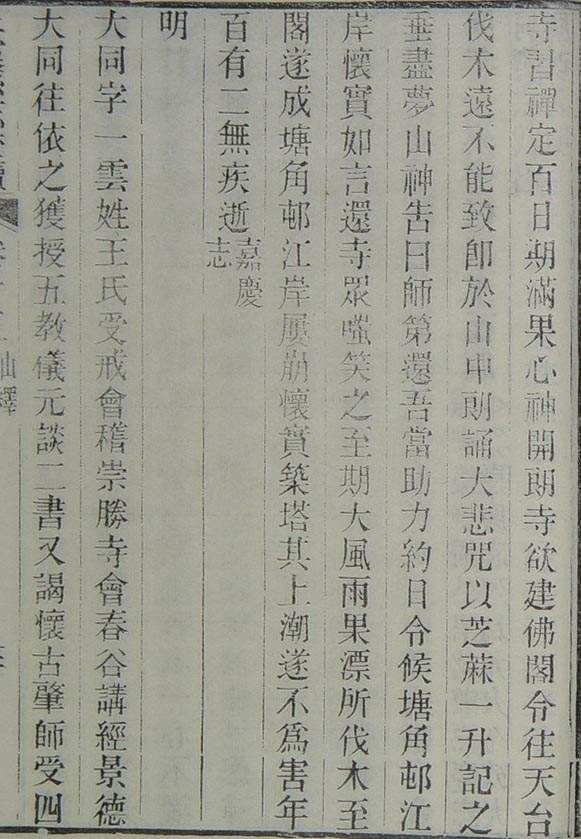 寺習禪定百日期滿果心神開朗寺欲建佛閣令往天台
伐木遠不能致卽於山中朗誦大悲咒以芝蔴一升記之
垂盡夢山神告曰師第還吾當助力約日令候塘角邨江
岸懷實如言還寺眾嗤笑之至期大風雨果漂所伐木至
閣遂成塘角邨江岸屢崩懷實築塔其上潮遂不爲害年
百有二無疾逝嘉慶志
明
大同字一雲姓王氏受戒會稽崇勝寺會春谷講經景德
大同往依之獲授五教儀元談二書又謁懷古肇師受四
仙釋